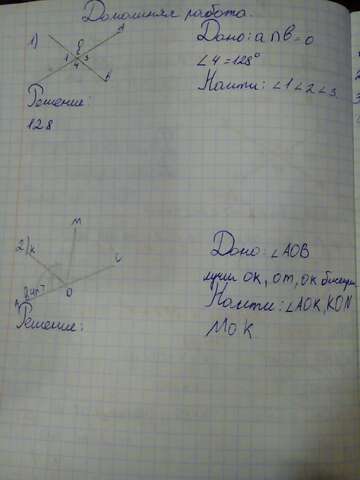 Домашняя работа.
1)
a
2
1 3
4
b
Дано: a∩b=0
∠4=128°
Найти: ∠1 ∠2 ∠3
Решение:
128
2)
M
K
O
Дано: ∠AOB
лучи OK, OM, OK
Найти: ∠AOK, KON
MOK
Решение: